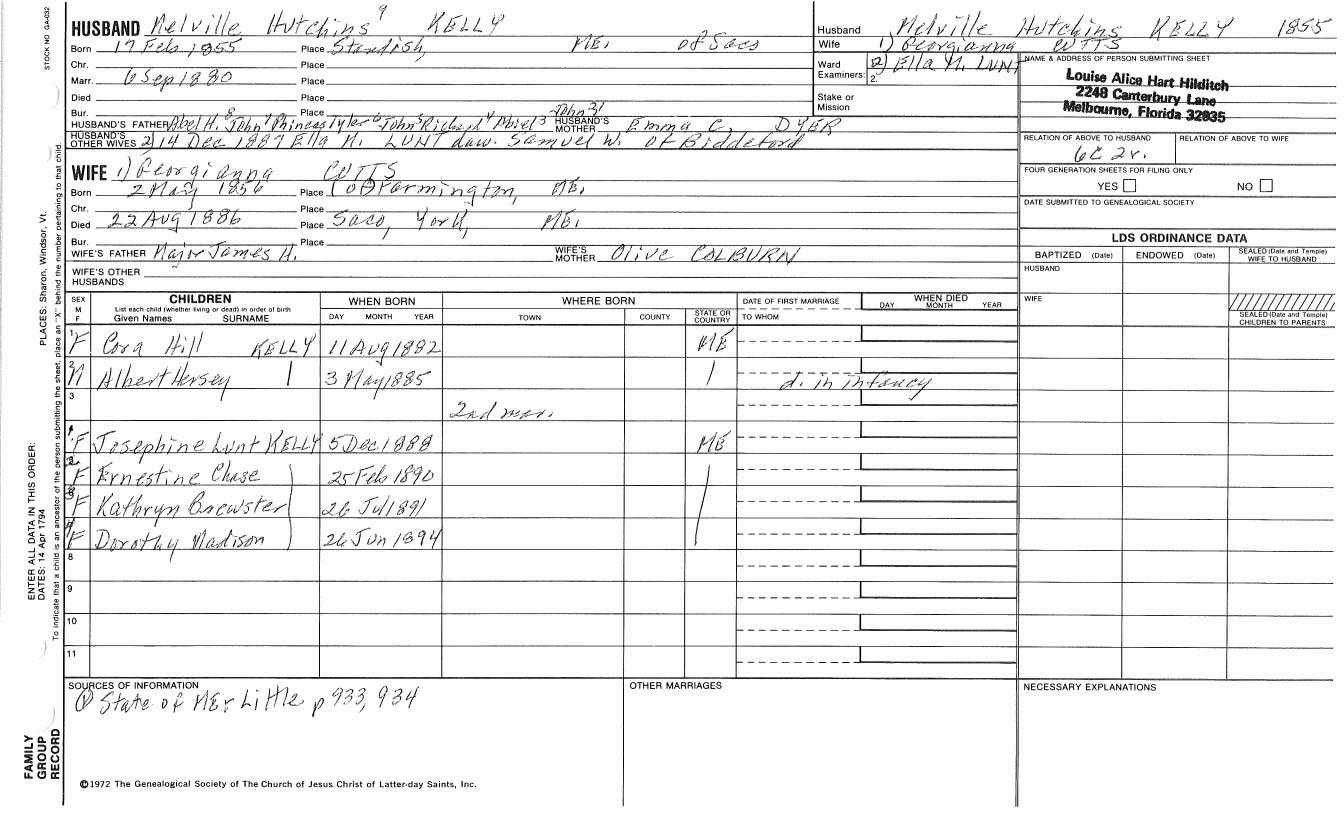 STOCK NO. GA-032
HUSBAND Melville Hutchins 9 KELLY
Born 17 Feb 1855 Place Standish, ME. of Saco
Chr. Place
Marr. 6 Sep 1880 Place
Died Place
Bur. Place
HUSBAND'S FATHER Abel H. 8 John 7 Princess Tyler 6 John 5 Richard 4 Abiel 3 John 21 HUSBAND'S MOTHER Emma C. DYER
HUSBAND'S OTHER WIVES 2) 14 Dec 1887 Ella M. LUNT dau. Samuel W. of Biddeford
WIFE 1) Georgianna CUTTS
Born 2 May 1856 Place Farmington, ME.
Chr. Place
Died 22 Aug 1886 Place Saco, York, ME.
Bur. Place
WIFE'S FATHER Major James H. WIFE'S MOTHER Olive COLBURN
WIFE'S OTHER HUSBANDS
Husband Melville Hutchins KELLY 1855
Wife 1) Georgianna CUTTS
2) Ella M. LUNT
Ward Examiners: 2.
Stake or Mission
NAME & ADDRESS OF PERSON SUBMITTING SHEET
Louise Alice Hart Hilditch
2248 Canterbury Lane
Melbourne, Florida 32935
RELATION OF ABOVE TO HUSBAND RELATION OF ABOVE TO WIFE
6C 2r.
FOUR GENERATION SHEETS FOR FILING ONLY
YES NO
DATE SUBMITTED TO GENEALOGICAL SOCIETY
LDS ORDINANCE DATA
BAPTIZED (Date) ENDOWED (Date) SEALED (Date and Temple) WIFE TO HUSBAND
HUSBAND
WIFE
SEALED (Date and Temple) CHILDREN TO PARENTS
SEX M F CHILDREN WHEN BORN WHERE BORN DATE OF FIRST MARRIAGE WHEN DIED
List each child (whether living or dead) in order of birth
Given Names SURNAME DAY MONTH YEAR TOWN COUNTY STATE OR COUNTRY TO WHOM DAY MONTH YEAR
1 F Cora Hill KELLY 11 Aug 1882 ME
2 M Albert Hersey 3 May 1885 d. in infancy
3 2nd mar.
1 F Josephine Lunt KELLY 5 Dec 1888 ME
2 F Ernestine Chase 25 Feb 1890
3 F Kathryn Brewster 26 Jul 1891
4 F Dorothy Madison 26 Jun 1894
8
9
10
11
SOURCES OF INFORMATION OTHER MARRIAGES NECESSARY EXPLANATIONS
① State of ME: Little p 933, 934
©1972 The Genealogical Society of The Church of Jesus Christ of Latter-day Saints, Inc.
FAMILY GROUP RECORD
ENTER ALL DATA IN THIS ORDER:
DATES: 14 Apr 1794
PLACES: Sharon, Windsor, Vt.
To indicate that a child is an ancestor of the person submitting the sheet, place an "X" behind the number pertaining to that child.